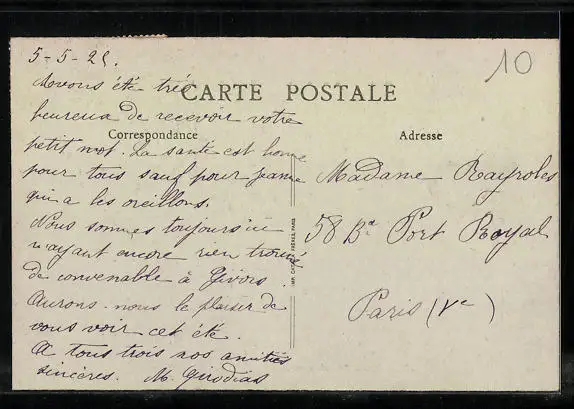 5-5-21.
10
Avons été très
CARTE POSTALE
heureux de recevoir votre
Correspondance
Adresse
petit mot. La santé est bonne
pour tous sauf pour Jeanne
qui a les oreillons.
Nous sommes toujours ici
n'ayant encore rien trouvé
de convenable à Givors
Aurons-nous le plaisir de
vous voir cet été.
A tous trois nos amitiés
sincères. M. Girodias
IMP. CATALA FRÈRES, PARIS
Madame Rayroles
58 Bd Port Royal
Paris (Ve)